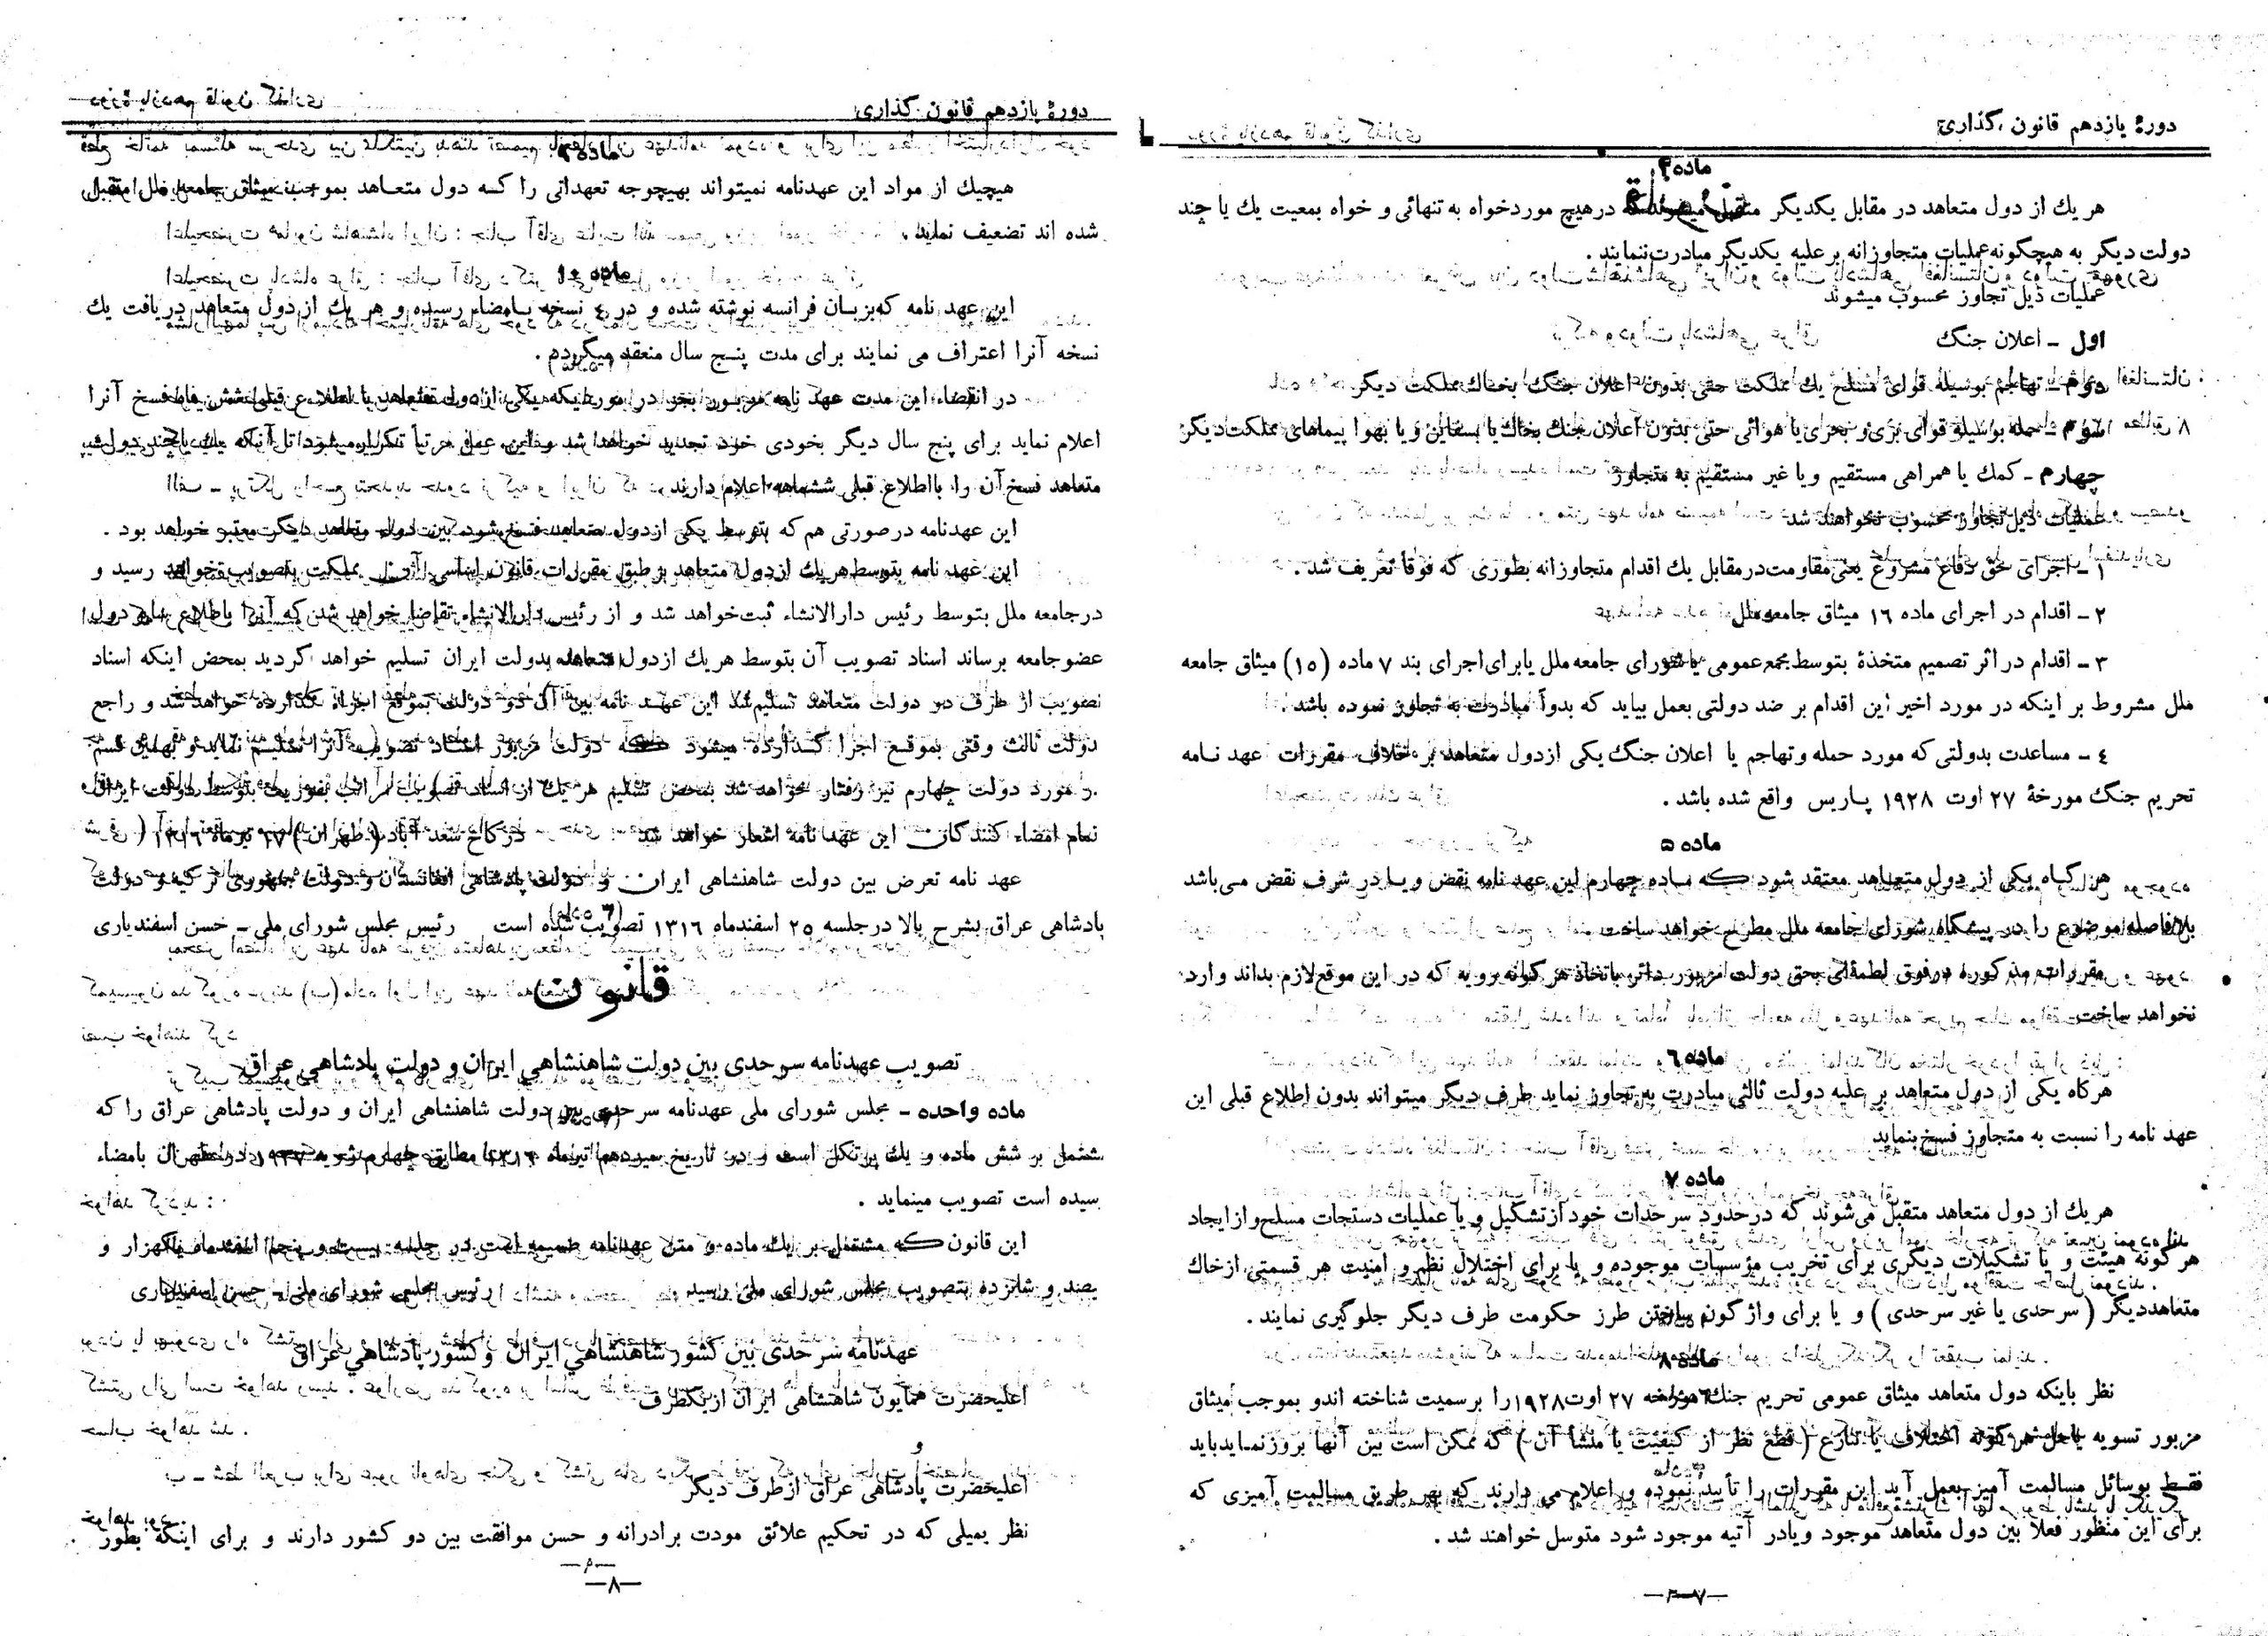 دورهٔ یازدهم قانون گذاری
ماده ۴
هر یك از دول متعاهد در مقابل یكدیگر متقبل میشوند كه در هیچ مورد خواه به تنهائی و خواه بمعیت یك یا چند
دولت دیگر به هیچگونه عملیات متجاوزانه بر علیه یكدیگر مبادرت ننمایند .
عملیات ذیل تجاوز محسوب میشوند
اول ــ اعلان جنگ
دوم ــ تهاجم بوسیله قوای مسلح یك مملكت حتی بدون اعلان جنگ بخاك مملكت دیگر
سوم ــ حمله بوسیله قوای بری و بحری یا هوائی حتی بدون اعلان جنگ بخاك یا بسفاین و یا بهوا پیماهای مملكت دیگر
چهارم ــ كمك یا همراهی مستقیم و یا غیر مستقیم به متجاوز
عملیات ذیل تجاوز محسوب نخواهند شد
۱ ــ اجرای حق دفاع مشروع یعنی مقاومت در مقابل یك اقدام متجاوزانه بطوری كه فوقاً تعریف شد .
۲ ــ اقدام در اجرای ماده ۱۶ میثاق جامعه ملل
۳ ــ اقدام در اثر تصمیم متخذهٔ بتوسط مجمع عمومی یا شورای جامعه ملل یا برای اجرای بند ۷ ماده (۱۵) میثاق جامعه
ملل مشروط بر اینكه در مورد اخیر این اقدام بر ضد دولتی بعمل بیاید كه بدواً مبادرت به تجاوز نموده باشد .
٤ ــ مساعدت بدولتی كه مورد حمله و تهاجم یا اعلان جنگ یكی از دول متعاهد بر خلاف مقررات عهد نامه
تحریم جنگ مورخهٔ ۲۷ اوت ۱۹۲۸ پاریس واقع شده باشد .
ماده ۵
هر گاه یكی از دول متعاهد معتقد شود كه ماده چهارم این عهد نامه نقض و یا در شرف نقض می‌باشد
بلافاصله موضوع را در پیشگاه شورای جامعه ملل مطرح خواهد ساخت
مقررات مذكوره در فوق لطمه‌ای بحق دولت مزبور دائر باتخاذ هر گونه رویه كه در این موقع لازم بداند وارد
نخواهد ساخت
ماده ۶
هر گاه یكی از دول متعاهد بر علیه دولت ثالثی مبادرت به تجاوز نماید طرف دیگر میتواند بدون اطلاع قبلی این
عهد نامه را نسبت به متجاوز فسخ بنماید
ماده ۷
هر یك از دول متعاهد متقبل می‌شوند كه در حدود سرحدات خود از تشكیل و یا عملیات دستجات مسلح و از ایجاد
هر گونه هیئت و یا تشكیلات دیگری برای تخریب مؤسسات موجوده و یا برای اختلال نظم و امنیت هر قسمتی از خاك
متعاهد دیگر ( سرحدی یا غیر سرحدی ) و یا برای واژگون ساختن طرز حكومت طرف دیگر جلوگیری نمایند .
ماده ۸
نظر باینكه دول متعاهد میثاق عمومی تحریم جنگ مورخه ۲۷ اوت ۱۹۲۸ را برسمیت شناخته اند و بموجب میثاق
مزبور تسویه یا حل هر گونه اختلاف یا تنازع ( قطع نظر از كیفیت یا منشأ آن ) كه ممكن است بین آنها بروز نماید باید
فقط بوسائل مسالمت آمیز بعمل آید این مقررات را تأیید نموده و اعلام می دارند كه بهر طریق مسالمت آمیزی كه
برای این منظور فعلا بین دول متعاهد موجود و یا در آتیه موجود شود متوسل خواهند شد .
ــ۷ــ
دورهٔ یازدهم قانون گذاری
ماده ۹
هیچیك از مواد این عهدنامه نمیتواند بهیچوجه تعهداتی را كه دول متعاهد بموجب میثاق جامعه ملل متقبل
شده اند تضعیف نماید .
ماده ۱۰
این عهد نامه كه بزبان فرانسه نوشته شده و در ٤ نسخه بامضاء رسیده و هر یك از دول متعاهد دریافت یك
نسخه آنرا اعتراف می نمایند برای مدت پنج سال منعقد میگردد .
در انقضاء این مدت عهد نامه مزبور بجز در موردیكه یكی از دول متعاهد با اطلاع قبلی شش ماه فسخ آنرا
اعلام نماید برای پنج سال دیگر بخودی خود تجدید خواهد شد و این عمل مرتباً تكرار میشود تا آنكه یك یا چند دولت
متعاهد فسخ آن را با اطلاع قبلی ششماهه اعلام دارند
این عهدنامه در صورتی هم كه بتوسط یكی از دول متعاهد فسخ شود بین دول متعاهد دیگر معتبر خواهد بود .
این عهد نامه بتوسط هر یك از دول متعاهد بر طبق مقررات قانون اساسی آن مملكت بتصویب خواهد رسید و
در جامعه ملل بتوسط رئیس دارالانشاء ثبت خواهد شد و از رئیس دارالانشاء تقاضا خواهد شد كه آنرا باطلاع سایر دول
عضو جامعه برساند اسناد تصویب آن بتوسط هر یك از دول متعاهد بدولت ایران تسلیم خواهد گردید بمحض اینكه اسناد
تصویب از طرف دو دولت متعاهد تسلیم شد این عهد نامه بین آن دو دولت بموقع اجراء گذارده خواهد شد و راجع
دولت ثالث وقتی بموقع اجرا گذارده میشود كه دولت مزبور اسناد تصویب آنرا تسلیم نماید و بهمین قسم
در مورد دولت چهارم نیز رفتار خواهد شد بمحض تسلیم هر یك از اسناد تصویب مراتب بفوریت بتوسط دولت ایران
تمام امضاء كنندگان این عهد نامه اشعار خواهد شد در كاخ سعد آباد ( طهران ) ۱۷ تیرماه ۱۳۱۶
عهد نامه تعرض بین دولت شاهنشاهی ایران و دولت پادشاهی افغانستان و دولت جمهوری تركیه و دولت
پادشاهی عراق بشرح بالا در جلسه ۲۵ اسفندماه ۱۳۱۶ تصویب شده است رئیس مجلس شورای ملی ــ حسن اسفندیاری
قانون
تصویب عهدنامه سرحدی بین دولت شاهنشاهی ایران و دولت پادشاهی عراق
ماده واحده ــ مجلس شورای ملی عهدنامه سرحدی بین دولت شاهنشاهی ایران و دولت پادشاهی عراق را كه
مشتمل بر شش ماده و یك پرتكل است و در تاریخ سیزدهم تیرماه ۱۳۱۶ مطابق چهارم ژویه ۱۹۳۷ در طهران بامضاء
رسیده است تصویب مینماید .
این قانون كه مشتمل بر یك ماده و متن عهدنامه ضمیمه است در جلسه بیست و پنجم اسفندماه یكهزار و
سیصد و شانزده بتصویب مجلس شورای ملی رسید رئیس مجلس شورای ملی ــ حسن اسفندیاری
عهدنامه سرحدی بین كشور شاهنشاهی ایران و كشور پادشاهی عراق
اعلیحضرت همایون شاهنشاهی ایران از یكطرف
و
اعلیحضرت پادشاهی عراق از طرف دیگر
نظر بمیلی كه در تحكیم علائق مودت برادرانه و حسن موافقت بین دو كشور دارند و برای اینكه بطور
ــ۸ــ